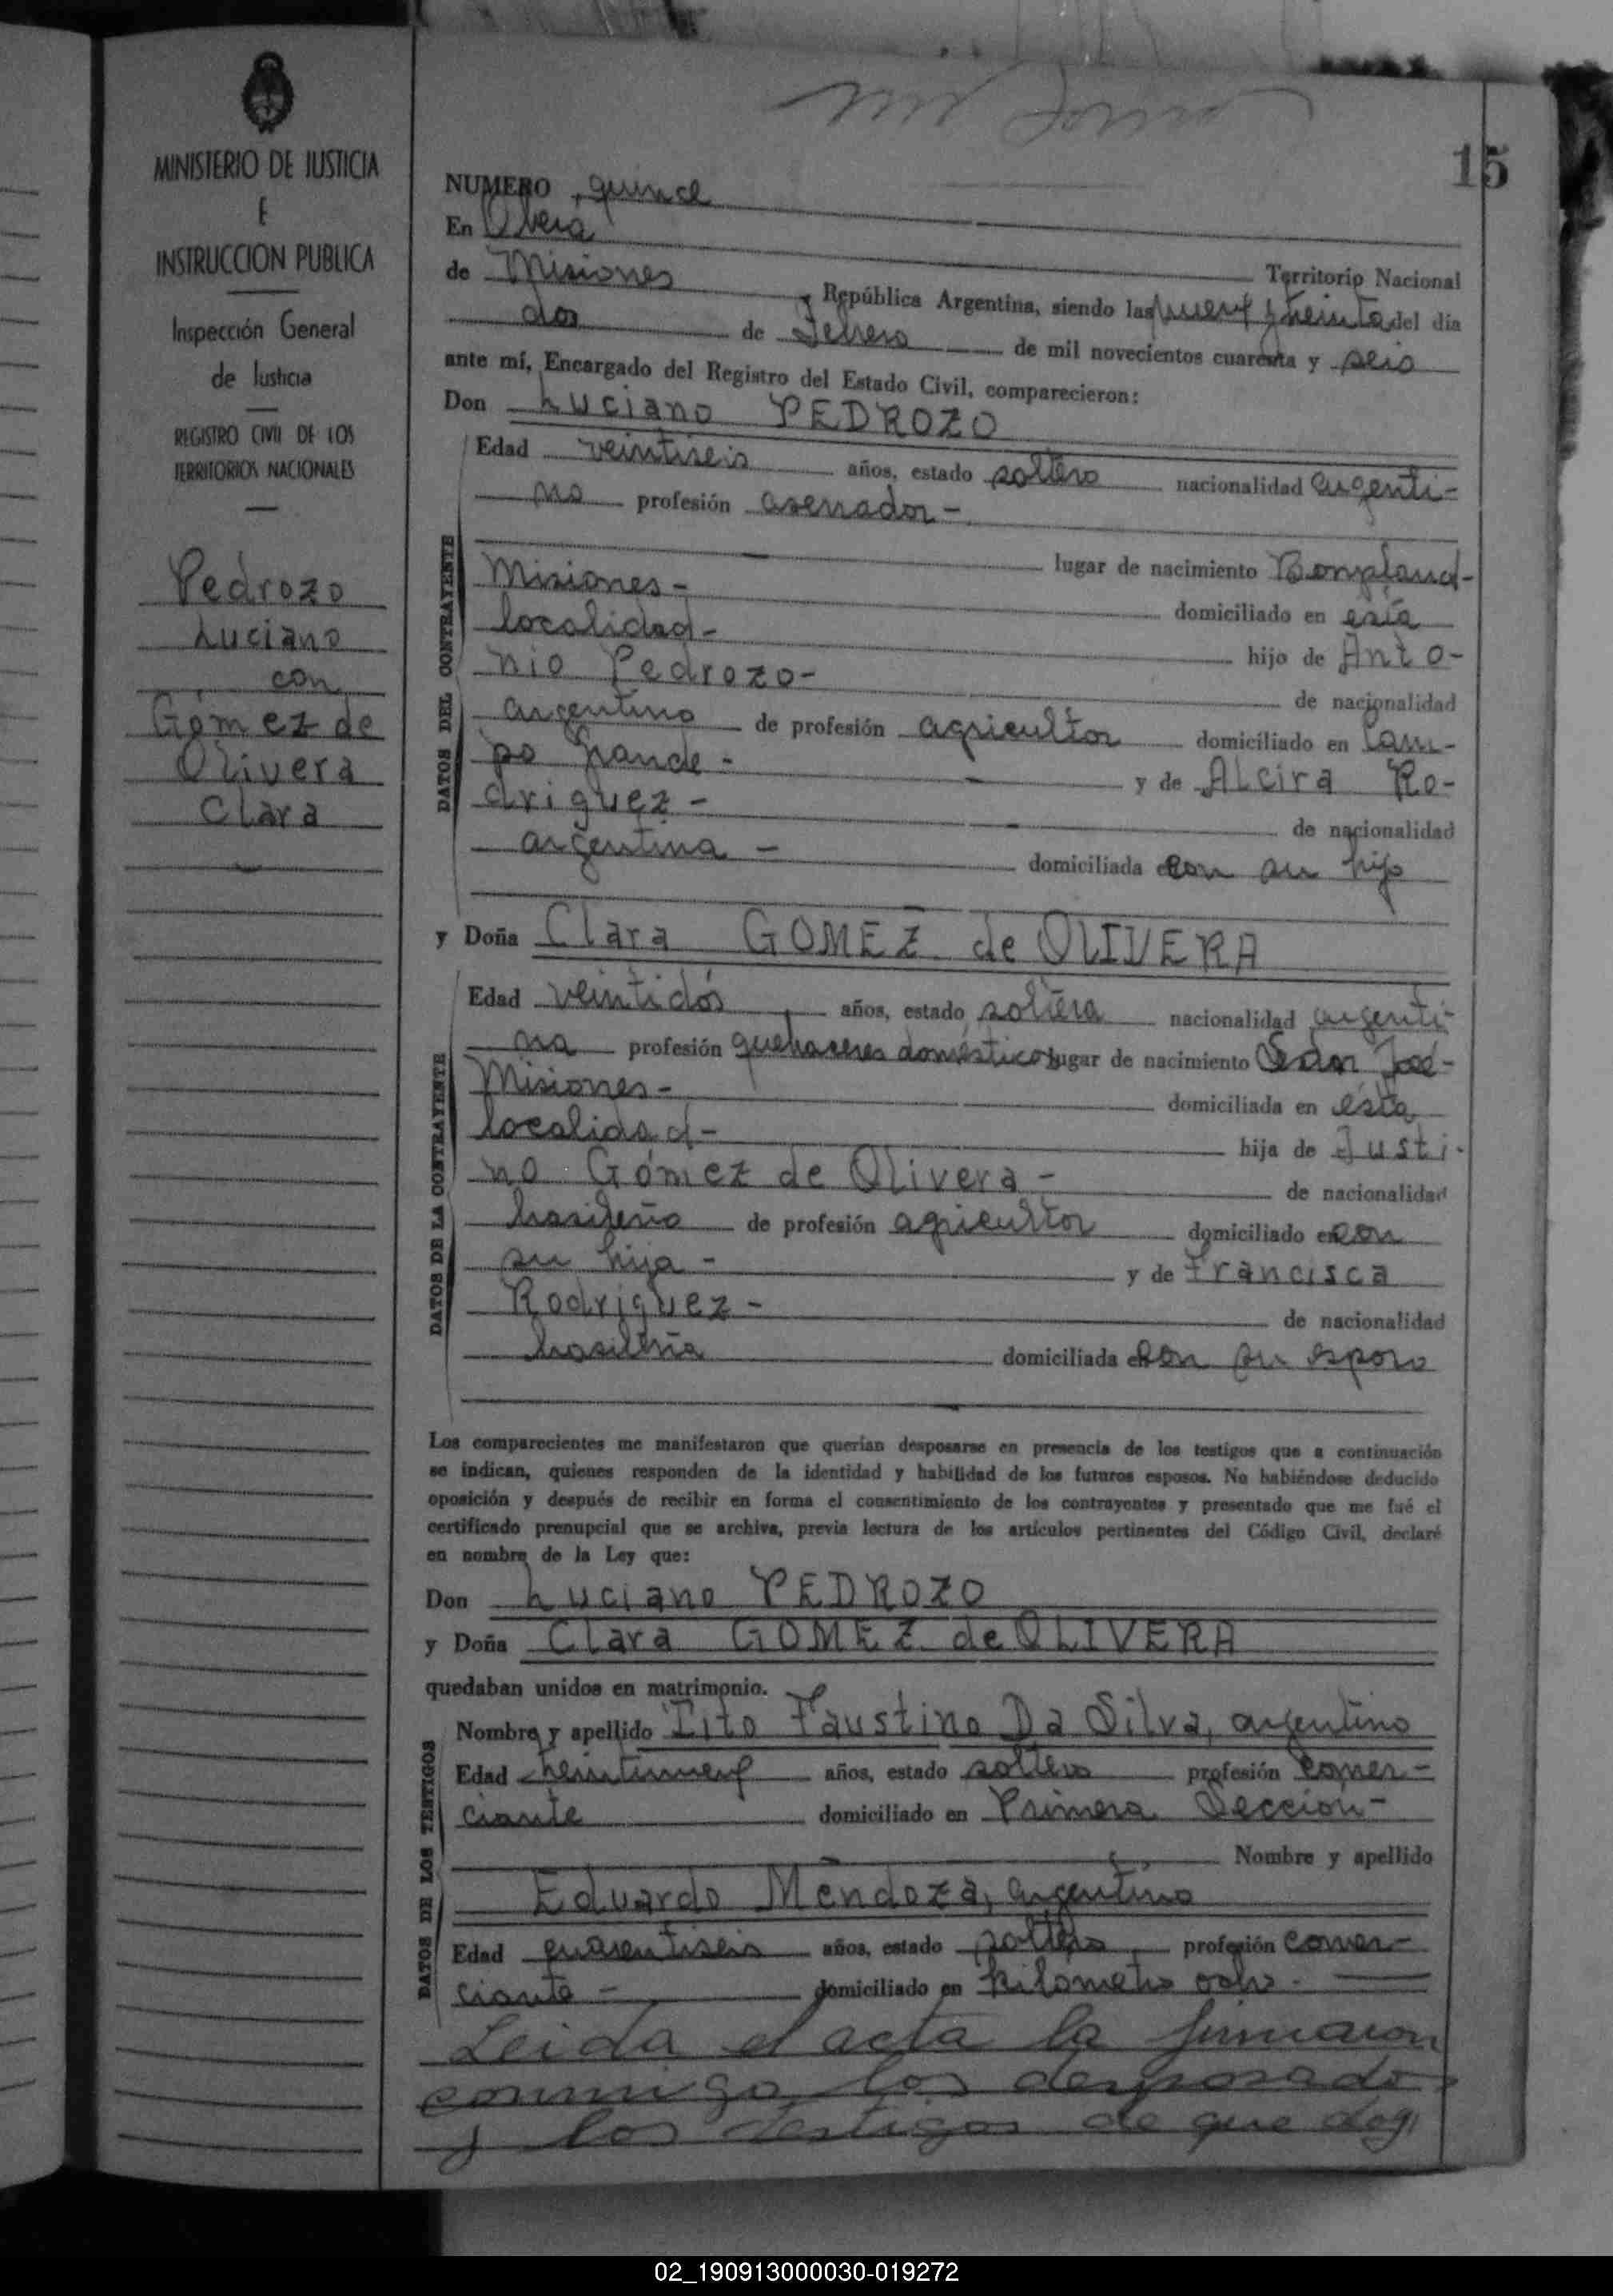 MINISTERIO DE JUSTICIA
E
INSTRUCCION PUBLICA
Inspección General
de Justicia
REGISTRO CIVIL DE LOS
TERRITORIOS NACIONALES
Pedrozo
Luciano
con
Gómez de
Olivera
Clara
15
NUMERO quince
En Oberá
de Misiones Territorio Nacional
República Argentina, siendo las nueve y treinta del día
dos de Febrero de mil novecientos cuarenta y seis
ante mí, Encargado del Registro del Estado Civil, comparecieron:
Don Luciano PEDROZO
DATOS DEL CONTRAYENTE
Edad veintiseis años, estado soltero nacionalidad argenti-
no profesión aserrador-
lugar de nacimiento Bonpland-
Misiones- domiciliado en esta
localidad- hijo de Anto-
nio Pedrozo- de nacionalidad
argentino de profesión agricultor domiciliado en Cam-
po Grande- y de Alcira Ro-
driguez- de nacionalidad
argentina - domiciliada con su hijo
y Doña Clara GOMEZ de OLIVERA
DATOS DE LA CONTRAYENTE
Edad veintidós años, estado soltera nacionalidad argenti-
na profesión quehaceres domésticos lugar de nacimiento San José-
Misiones- domiciliada en ésta
localidad- hija de Justi-
no Gómez de Olivera- de nacionalidad
brasileño de profesión agricultor domiciliado en con
su hija- y de Francisca
Rodriguez- de nacionalidad
brasileña domiciliada en con su esposo
Los comparecientes me manifestaron que querían desposarse en presencia de los testigos que a continuación
se indican, quienes responden de la identidad y habilidad de los futuros esposos. No habiéndose deducido
oposición y después de recibir en forma el consentimiento de los contrayentes y presentado que me fué el
certificado prenupcial que se archiva, previa lectura de los artículos pertinentes del Código Civil, declaré
en nombre de la Ley que:
Don Luciano PEDROZO
y Doña Clara GOMEZ de OLIVERA
quedaban unidos en matrimonio.
DATOS DE LOS TESTIGOS
Nombre y apellido Tito Faustino Da Silva, argentino
Edad treintinueve años, estado soltero profesión comer-
ciante domiciliado en Primera Sección-
Nombre y apellido
Eduardo Mendoza, argentino
Edad cuarentiseis años, estado soltero profesión comer-
ciante- domiciliado en kilometro ocho.
Leida el acta la firmaron
conmigo los desposados
y los testigos de que doy
02_190913000030-019272